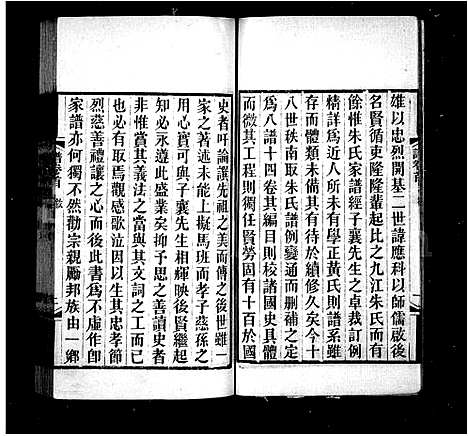 雄以忠烈開基二世諱應科以師儒啟後
名賢循吏隆隆輩起以比之九江朱氏而有
餘惟朱氏家譜經子襄先生之卓裁訂例
精詳爲近人所未有學正黃氏則譜系雖
存而體類未備其有待於續修久矣今十
八世秩南取朱氏譜例變通而刪補之定
爲八譜十四卷其編目則校諸國史具體
而微其工程則獨任賢勞固有十百於國
史者吁論譔先祖之美而傳之後世雖一
家之著述未能上擬馬班而孝子慈孫之
用心實可與子襄先生相輝映後賢繼起
知必永遵此盛業矣抑予思之善讀史者
非惟嘗其義法之當與其文詞之工而已
也必有取焉觀感歌泣因以生其忠孝節
烈慈善禮讓之心而後此書爲不虛作卽
家譜亦何獨不然勸宗親勵邦族由一鄉